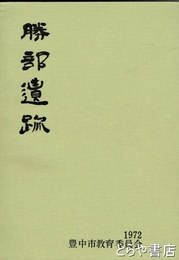 勝部遺跡
1972
豊中市教育委員会
とらや書店